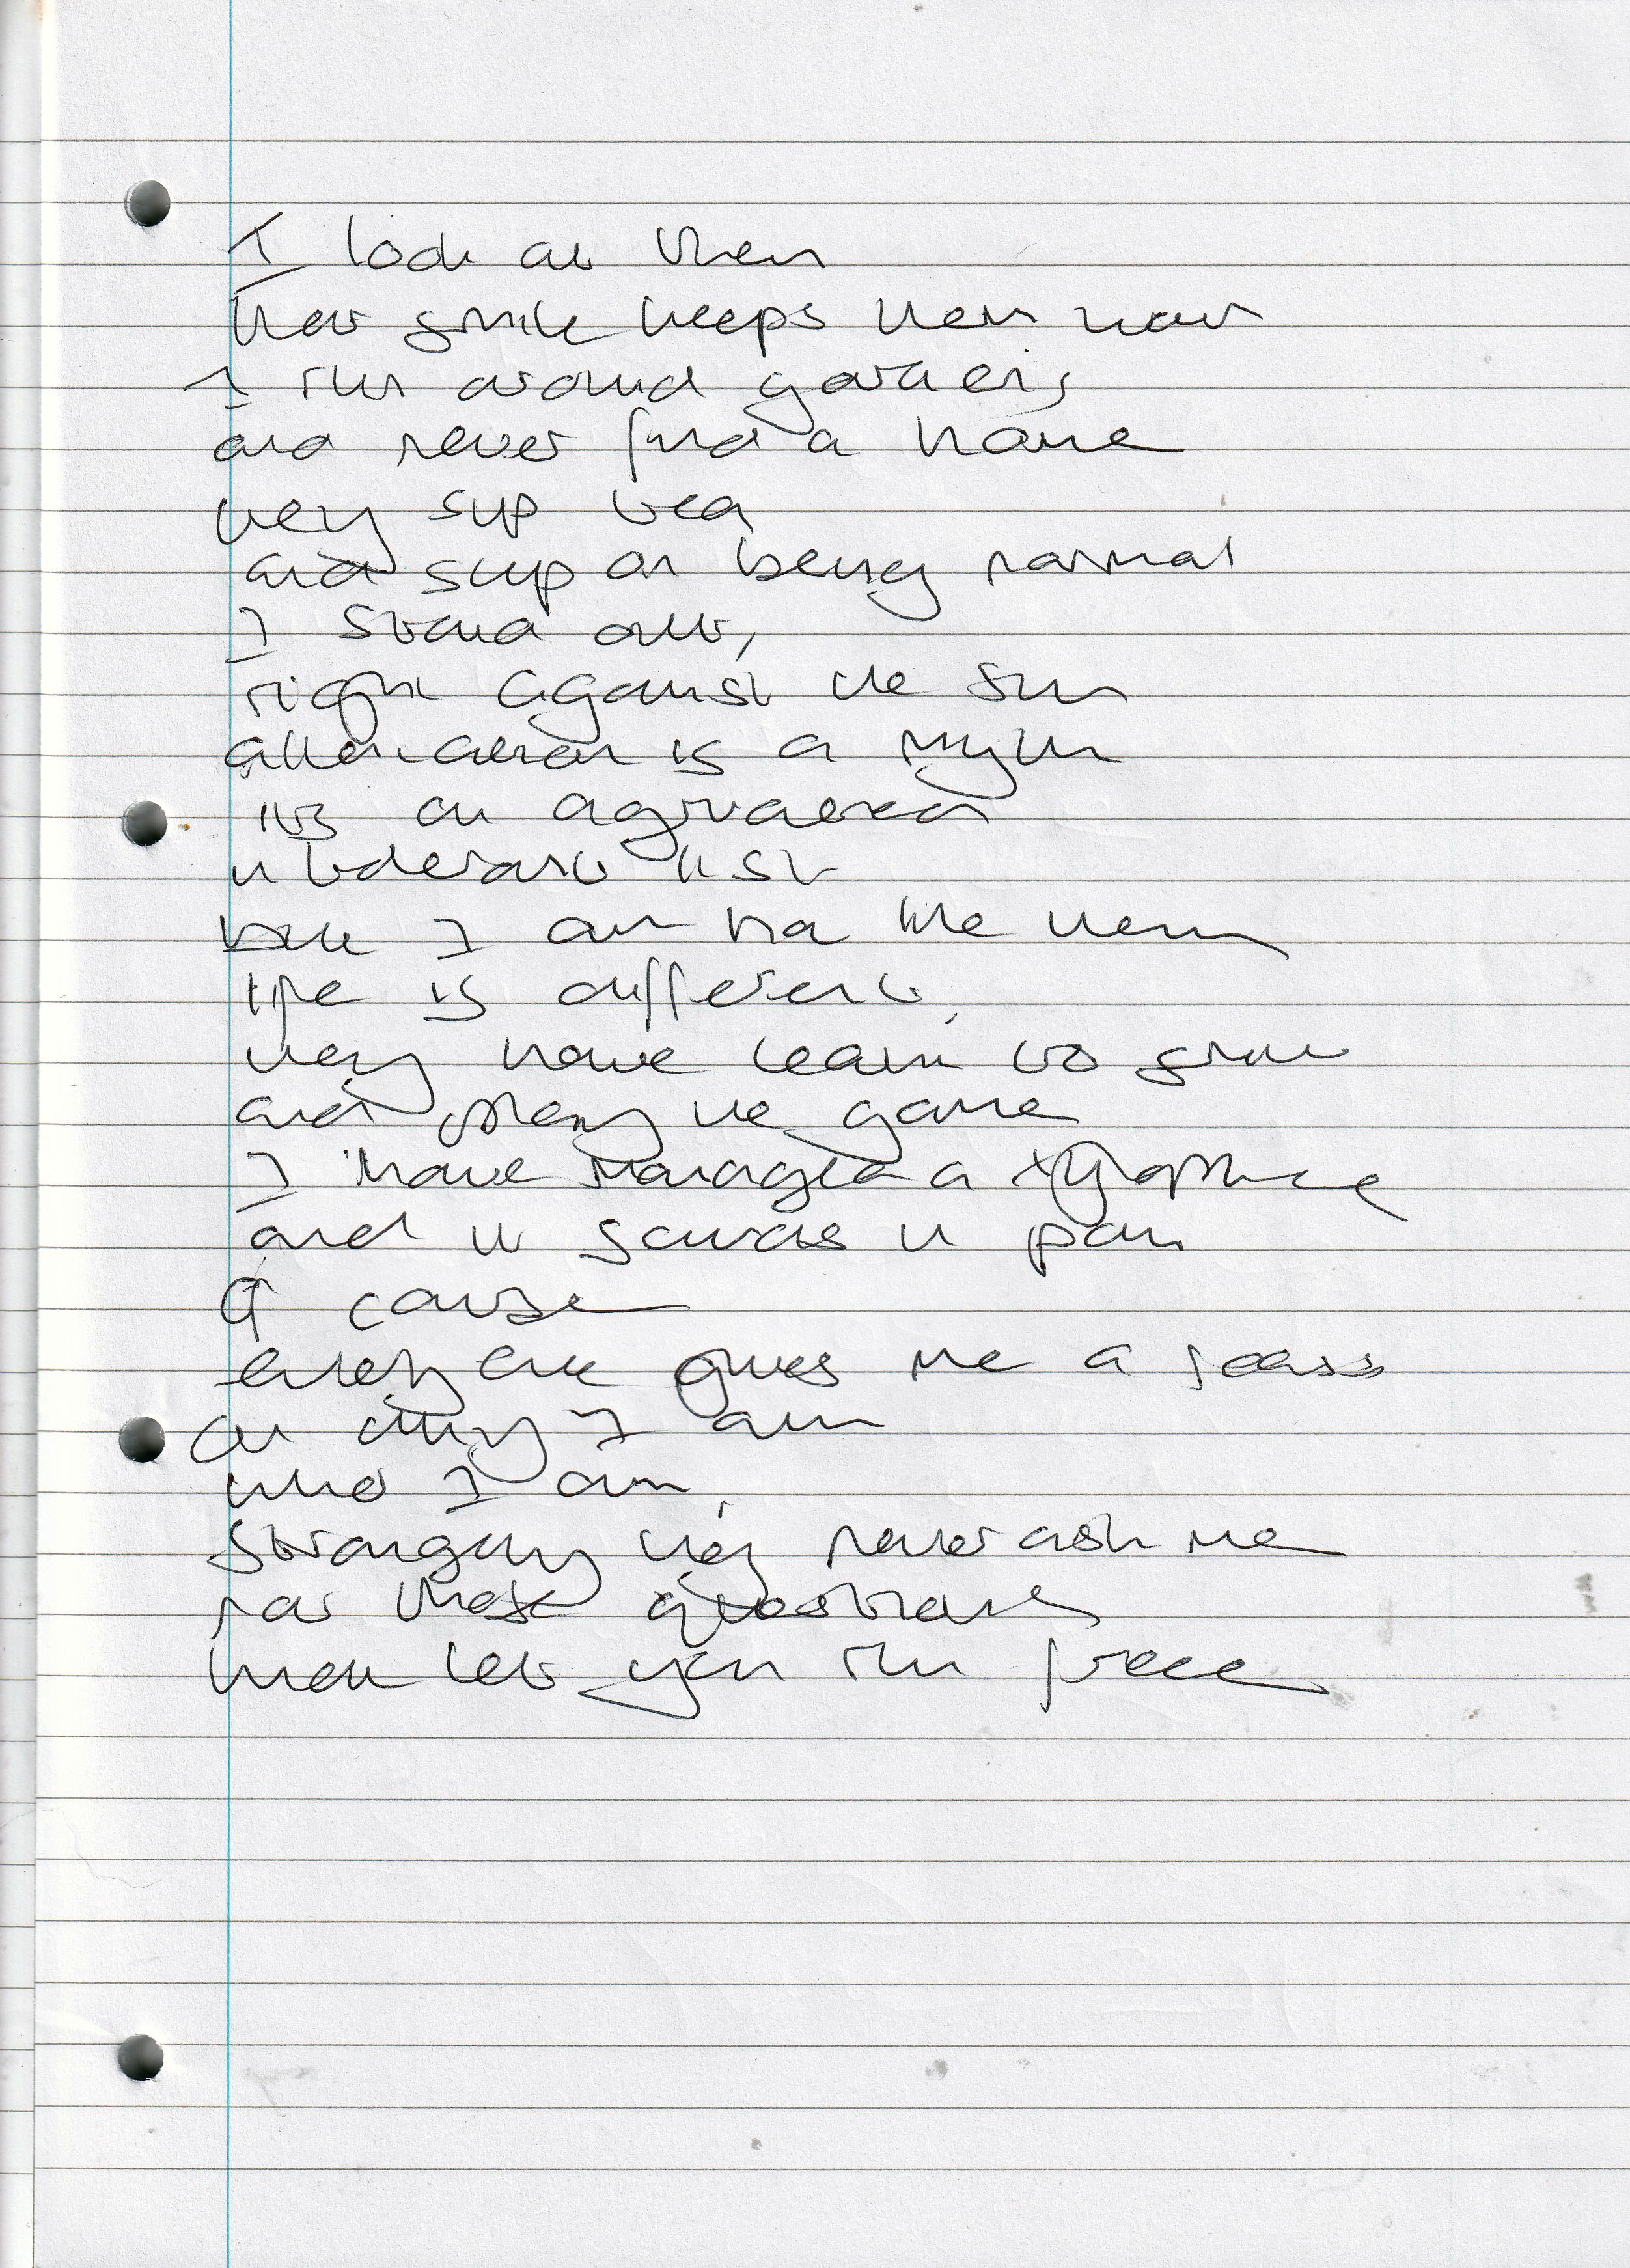 I look at them
their smile keeps them near
I run around gardens,
and never find a home
they sip tea,
and sup on being normal
I stand out,
right against the sun
is a myth
its an
intolerant list
but I am not like them
life is different,
they have learnt to grow
and play the game
I have managed a
and it sounds in pain
Of course
everyone gives me a
on why I am
who I am,
strangely they never ask me
for those questions
then let you run free